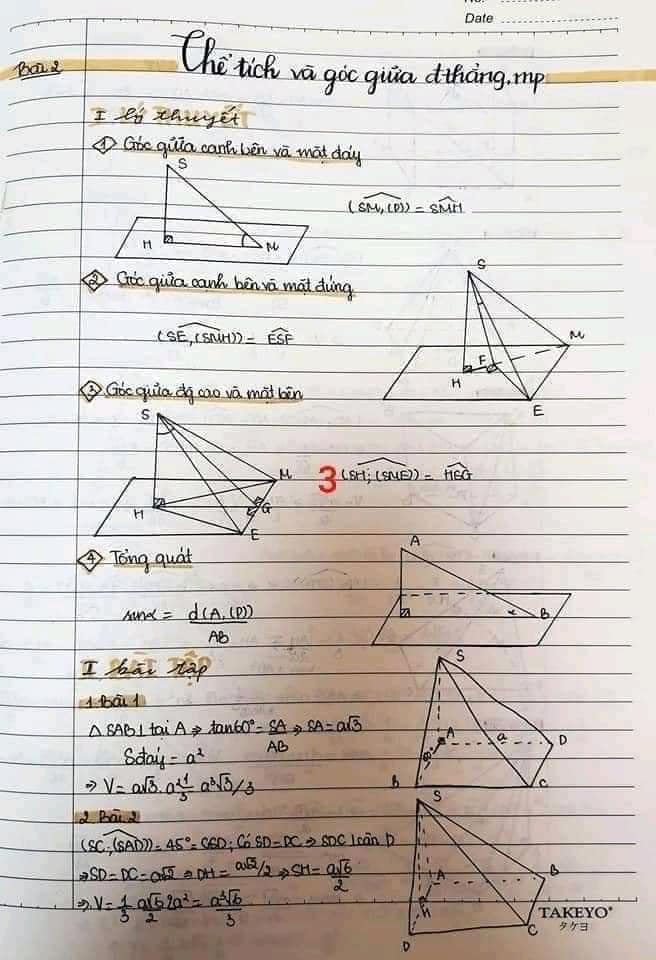 No.
Date
Bài 2
Thể tích và góc giữa đthẳng, mp
I lý thuyết
1 Góc giữa cạnh bên và mặt đáy
S
H
M
(SM, (P)) = SMH
2 Góc giữa cạnh bên và mặt đứng
(SE, (SMH)) = ESF
S
M
H
F
E
3 Góc giữa đg cao và mặt bên
S
M
H
G
E
3 (SH; (SME)) = HSG
4 Tổng quát
sinα = d(A, (P))
AB
A
α
B
I bài tập
1 Bài 1
Δ SAB⊥ tại A ⇒ tan60° = SA/AB ⇒ SA = a√3
Sđáy = a²
⇒ V = a√3 . a² 1/3 = a³√3/3
S
A
a
D
B
C
2 Bài 2
(SC; (SAD)) = 45° = CSD; Có SD = DC ⇒ SDC ⊥ cân D
⇒ SD = DC = a√2 ⇒ DH = a√2/2 ⇒ SH = a√6/2
⇒ V = 1/3 a√6/2 2a² = a³√6/3
S
A
B
H
D
C
TAKEYO®
タケヨ